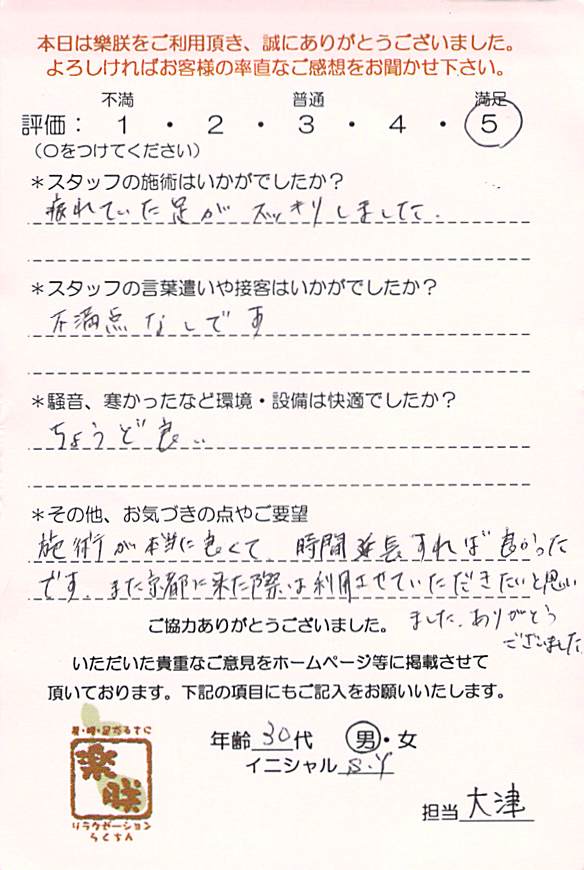 本日は樂朕をご利用頂き、誠にありがとうございました。
よろしければお客様の率直なご感想をお聞かせ下さい。
不満 普通 満足
評価： 1 ・ 2 ・ 3 ・ 4 ・ 5
（○をつけてください）
＊スタッフの施術はいかがでしたか？
疲れていた足がスッキリしました。
＊スタッフの言葉遣いや接客はいかがでしたか？
不満点なしです
＊騒音、寒かったなど環境・設備は快適でしたか？
ちょうど良い
＊その他、お気づきの点やご要望
施術が本当に良くて、時間延長すれば良かった
です。また京都に来た際は利用させていただきたいと思い
ました。ありがとう
ございました
ご協力ありがとうございました。
いただいた貴重なご意見をホームページ等に掲載させて
頂いております。下記の項目にもご記入をお願いいたします。
年齢 30代 男・女
イニシャル S.Y
担当 大津
肩・腰・足かるすぐ
楽朕
リラクゼーション
らくちん